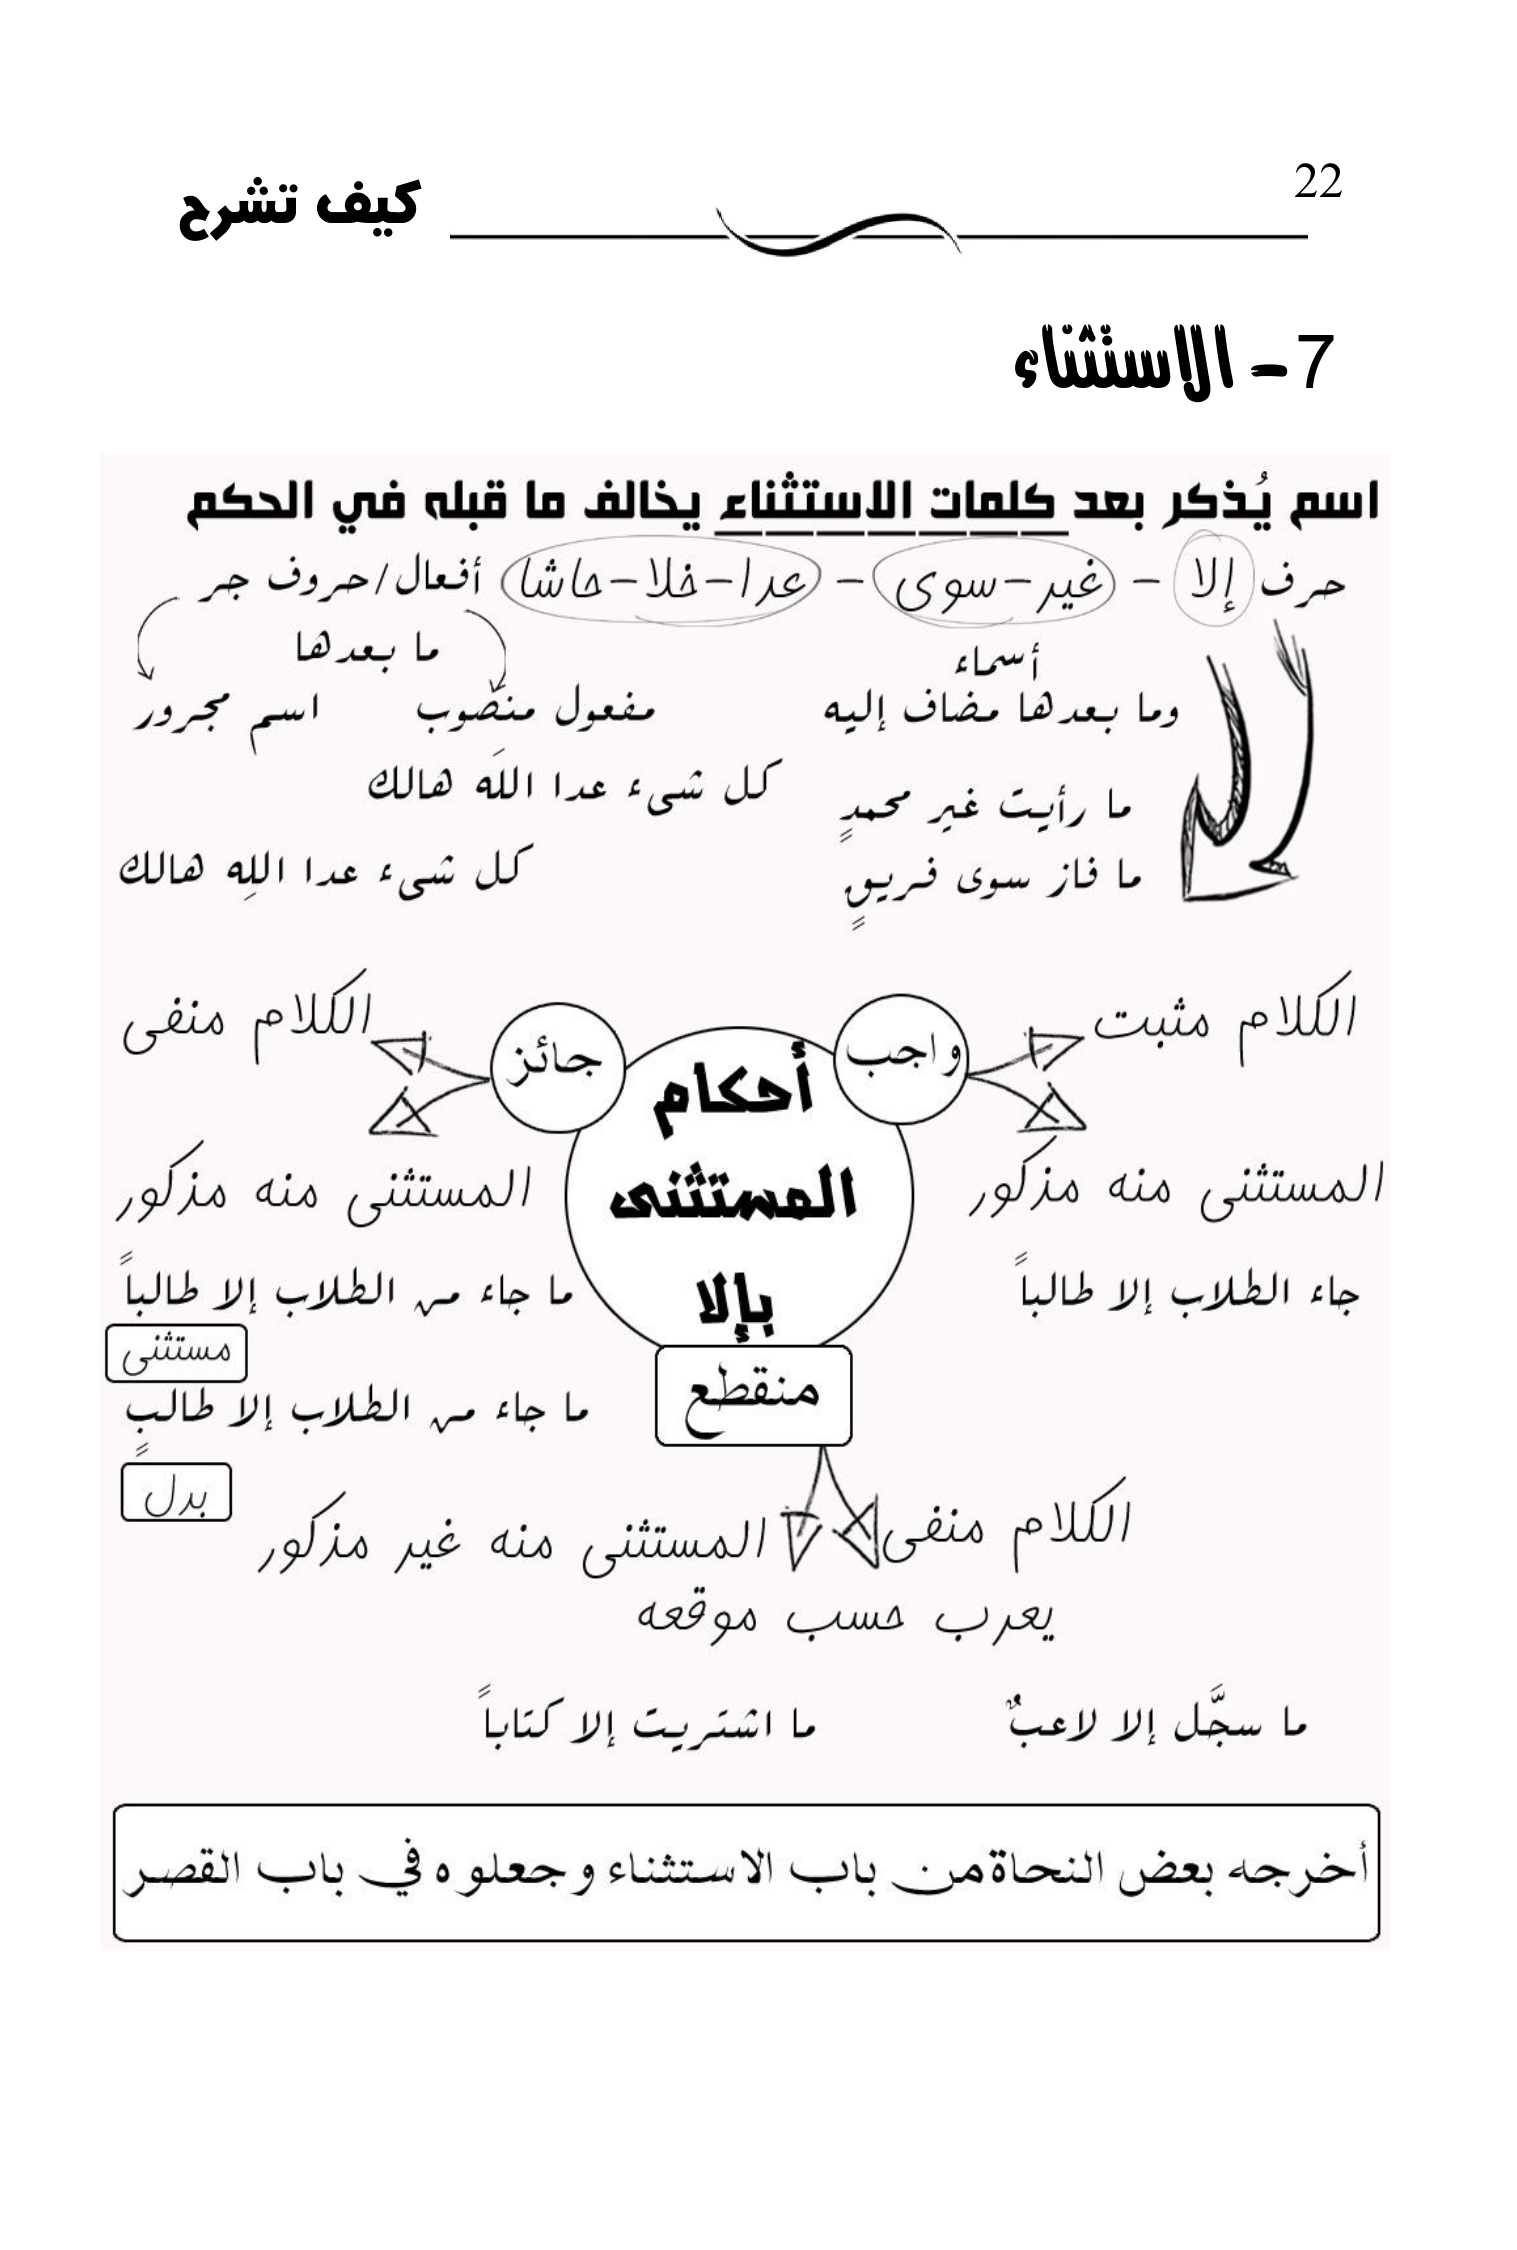 22
كيف تشرح
7- الاستثناء
اسم يُذكر بعد كلمات الاستثناء يخالف ما قبله في الحكم
حرف إلا - غير-سوى - عدا-خلا-حاشا أفعال/حروف جر
أسماء
ما بعدها
وما بعدها مضاف إليه
مفعول منصوب
اسم مجرور
ما رأيت غير محمدٍ
كل شىء عدا اللَه هالك
ما فاز سوى فريقٍ
كل شىء عدا اللِه هالك
أحكام
المستثنى
بإلا
واجب
الكلام مثبت
المستثنى منه مذكور
جاء الطلاب إلا طالباً
جائز
الكلام منفى
المستثنى منه مذكور
ما جاء من الطلاب إلا طالباً
مستثنى
ما جاء من الطلاب إلا طالبٍ
بدل
منقطع
الكلام منفى
المستثنى منه غير مذكور
يعرب حسب موقعه
ما سجَّل إلا لاعبٌ
ما اشتريت إلا كتاباً
أخرجه بعض النحاة من باب الاستثناء وجعلوه في باب القصر